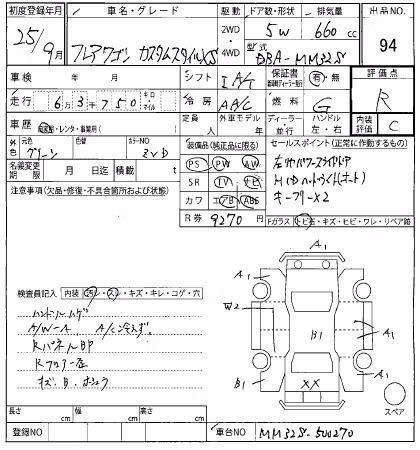 初度登録年月 車名・グレード ドア数・形状 排気量 出品NO.
25/9月 フレアワゴン カスタムスタイル XS 2WD・4WD 5W 660 cc 94
型式 DBA-MM32S
車検 年 月 シフト I A/T 保証書 有・無 評価点
走行 6万3千750 キロ マイル 冷房 AAC 燃料 G R
車歴 自家用・レンタ・事業用( ) 定員 人 外車モデル 年 ディーラー 並行 ハンドル 左・右 内装評価 C
外色 元色 グリーン 色替 カラーNO ZVD 装備品(純正品に限る) セールスポイント(正常に作動するもの)
名義変更期限 月 日迄 積載 t PS PW AW 左リヤパワースライドドア
注意事項(欠品・修復・不具合箇所および状態) SR TV ナビ HIDヘッドライト(オート)
カワ エアB ABS キーフリーX2
R券 9270円 Fガラス トビ石・キズ・ヒビ・ワレ・リペア跡
A1
A1 A1
検査員記入 内装 汚レ・スレ・キズ・キレ・コゲ・穴
ハンドルハゲ W2 B1 A1
A/W-A A/C冷えず。
Rパネル凹
Rフロアー歪
キズ.B.ホシュウ B1 XX A1
スペア
長さ cm 幅 cm 高さ cm
登録NO 車台NO MM32S-500270